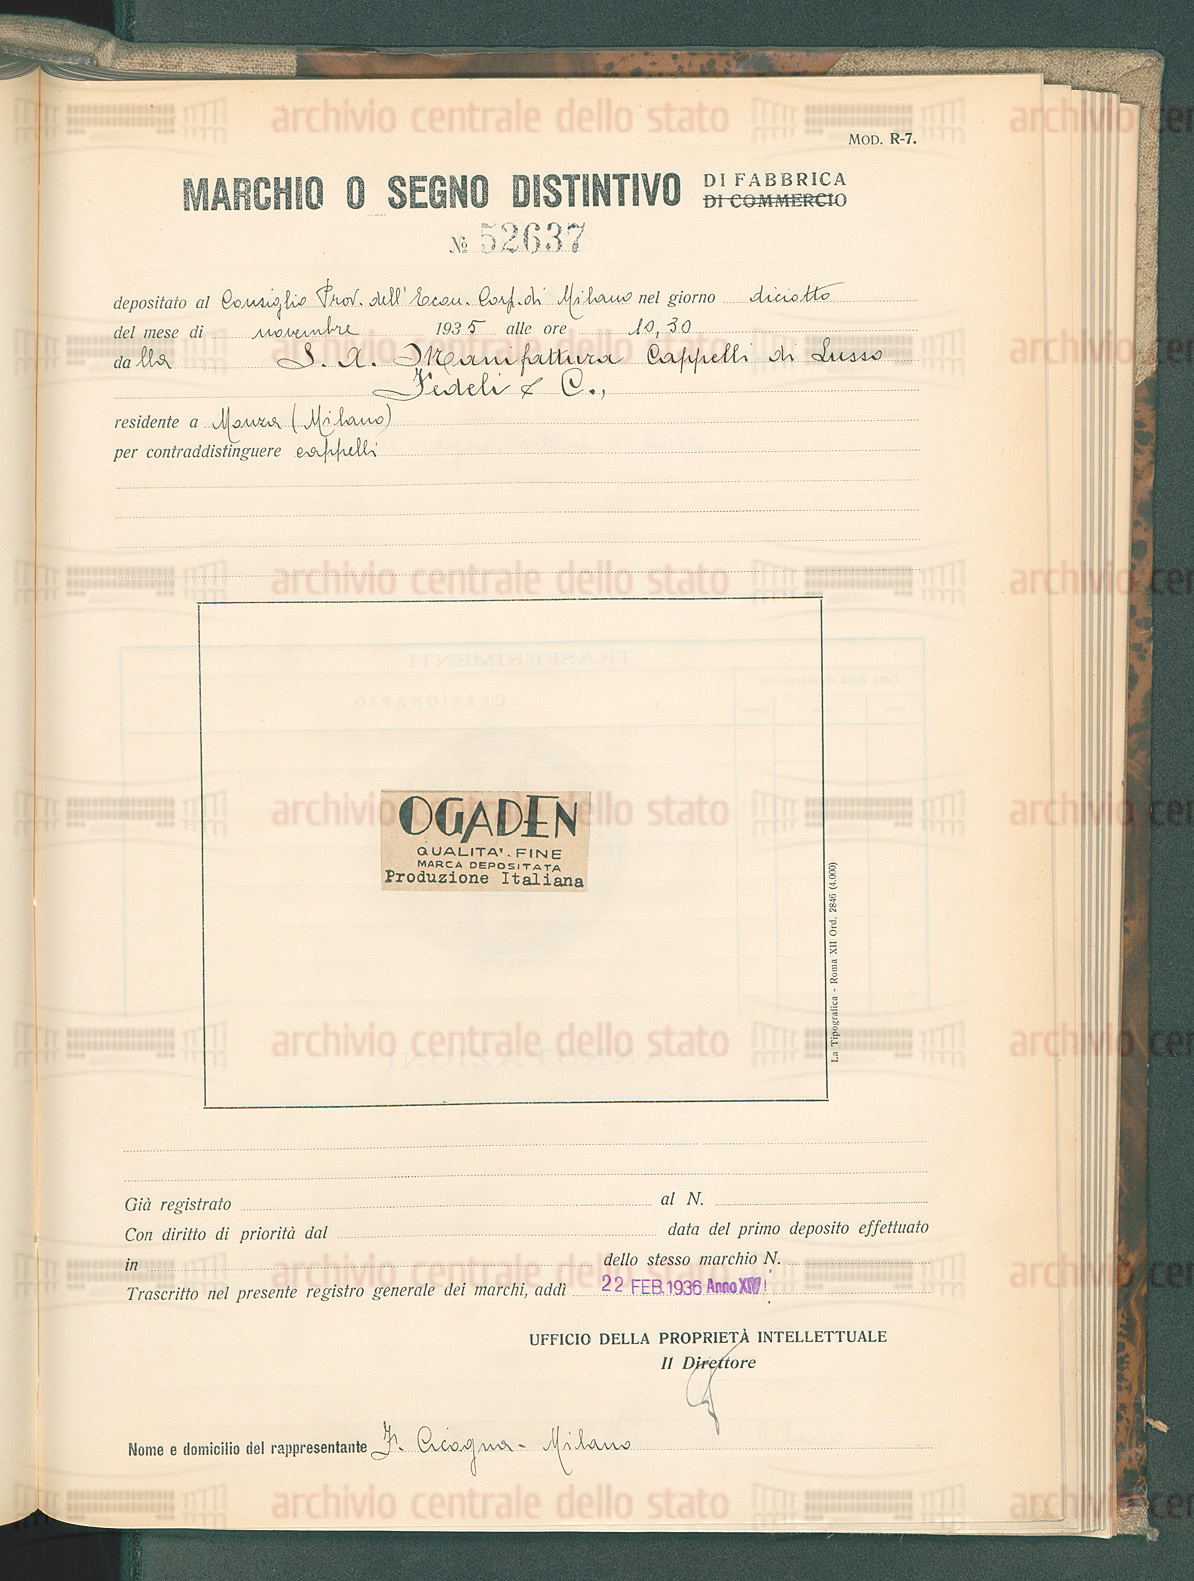 MOD. R-7.
MARCHIO O SEGNO DISTINTIVO DI FABBRICA
DI COMMERCIO
№ 52637
depositato al Consiglio Prov. dell'Econ. Corp. di Milano nel giorno diciotto
del mese di novembre 1935 alle ore 10,30
dalla S. A. Manifattura Cappelli di Lusso
Fedeli & C.,
residente a Monza (Milano)
per contraddistinguere cappelli
OGADEN
QUALITA'-FINE
MARCA DEPOSITATA
Produzione Italiana
La Tipografica - Roma XII Ord. 2846 (4.000)
Già registrato al N.
Con diritto di priorità dal data del primo deposito effettuato
in dello stesso marchio N.
Trascritto nel presente registro generale dei marchi, addì 22 FEB. 1936 Anno XIV
UFFICIO DELLA PROPRIETÀ INTELLETTUALE
Il Direttore
Nome e domicilio del rappresentante F. Cicogna - Milano
archivio centrale dello stato
TRASFERIMENTI
CESSIONARIO